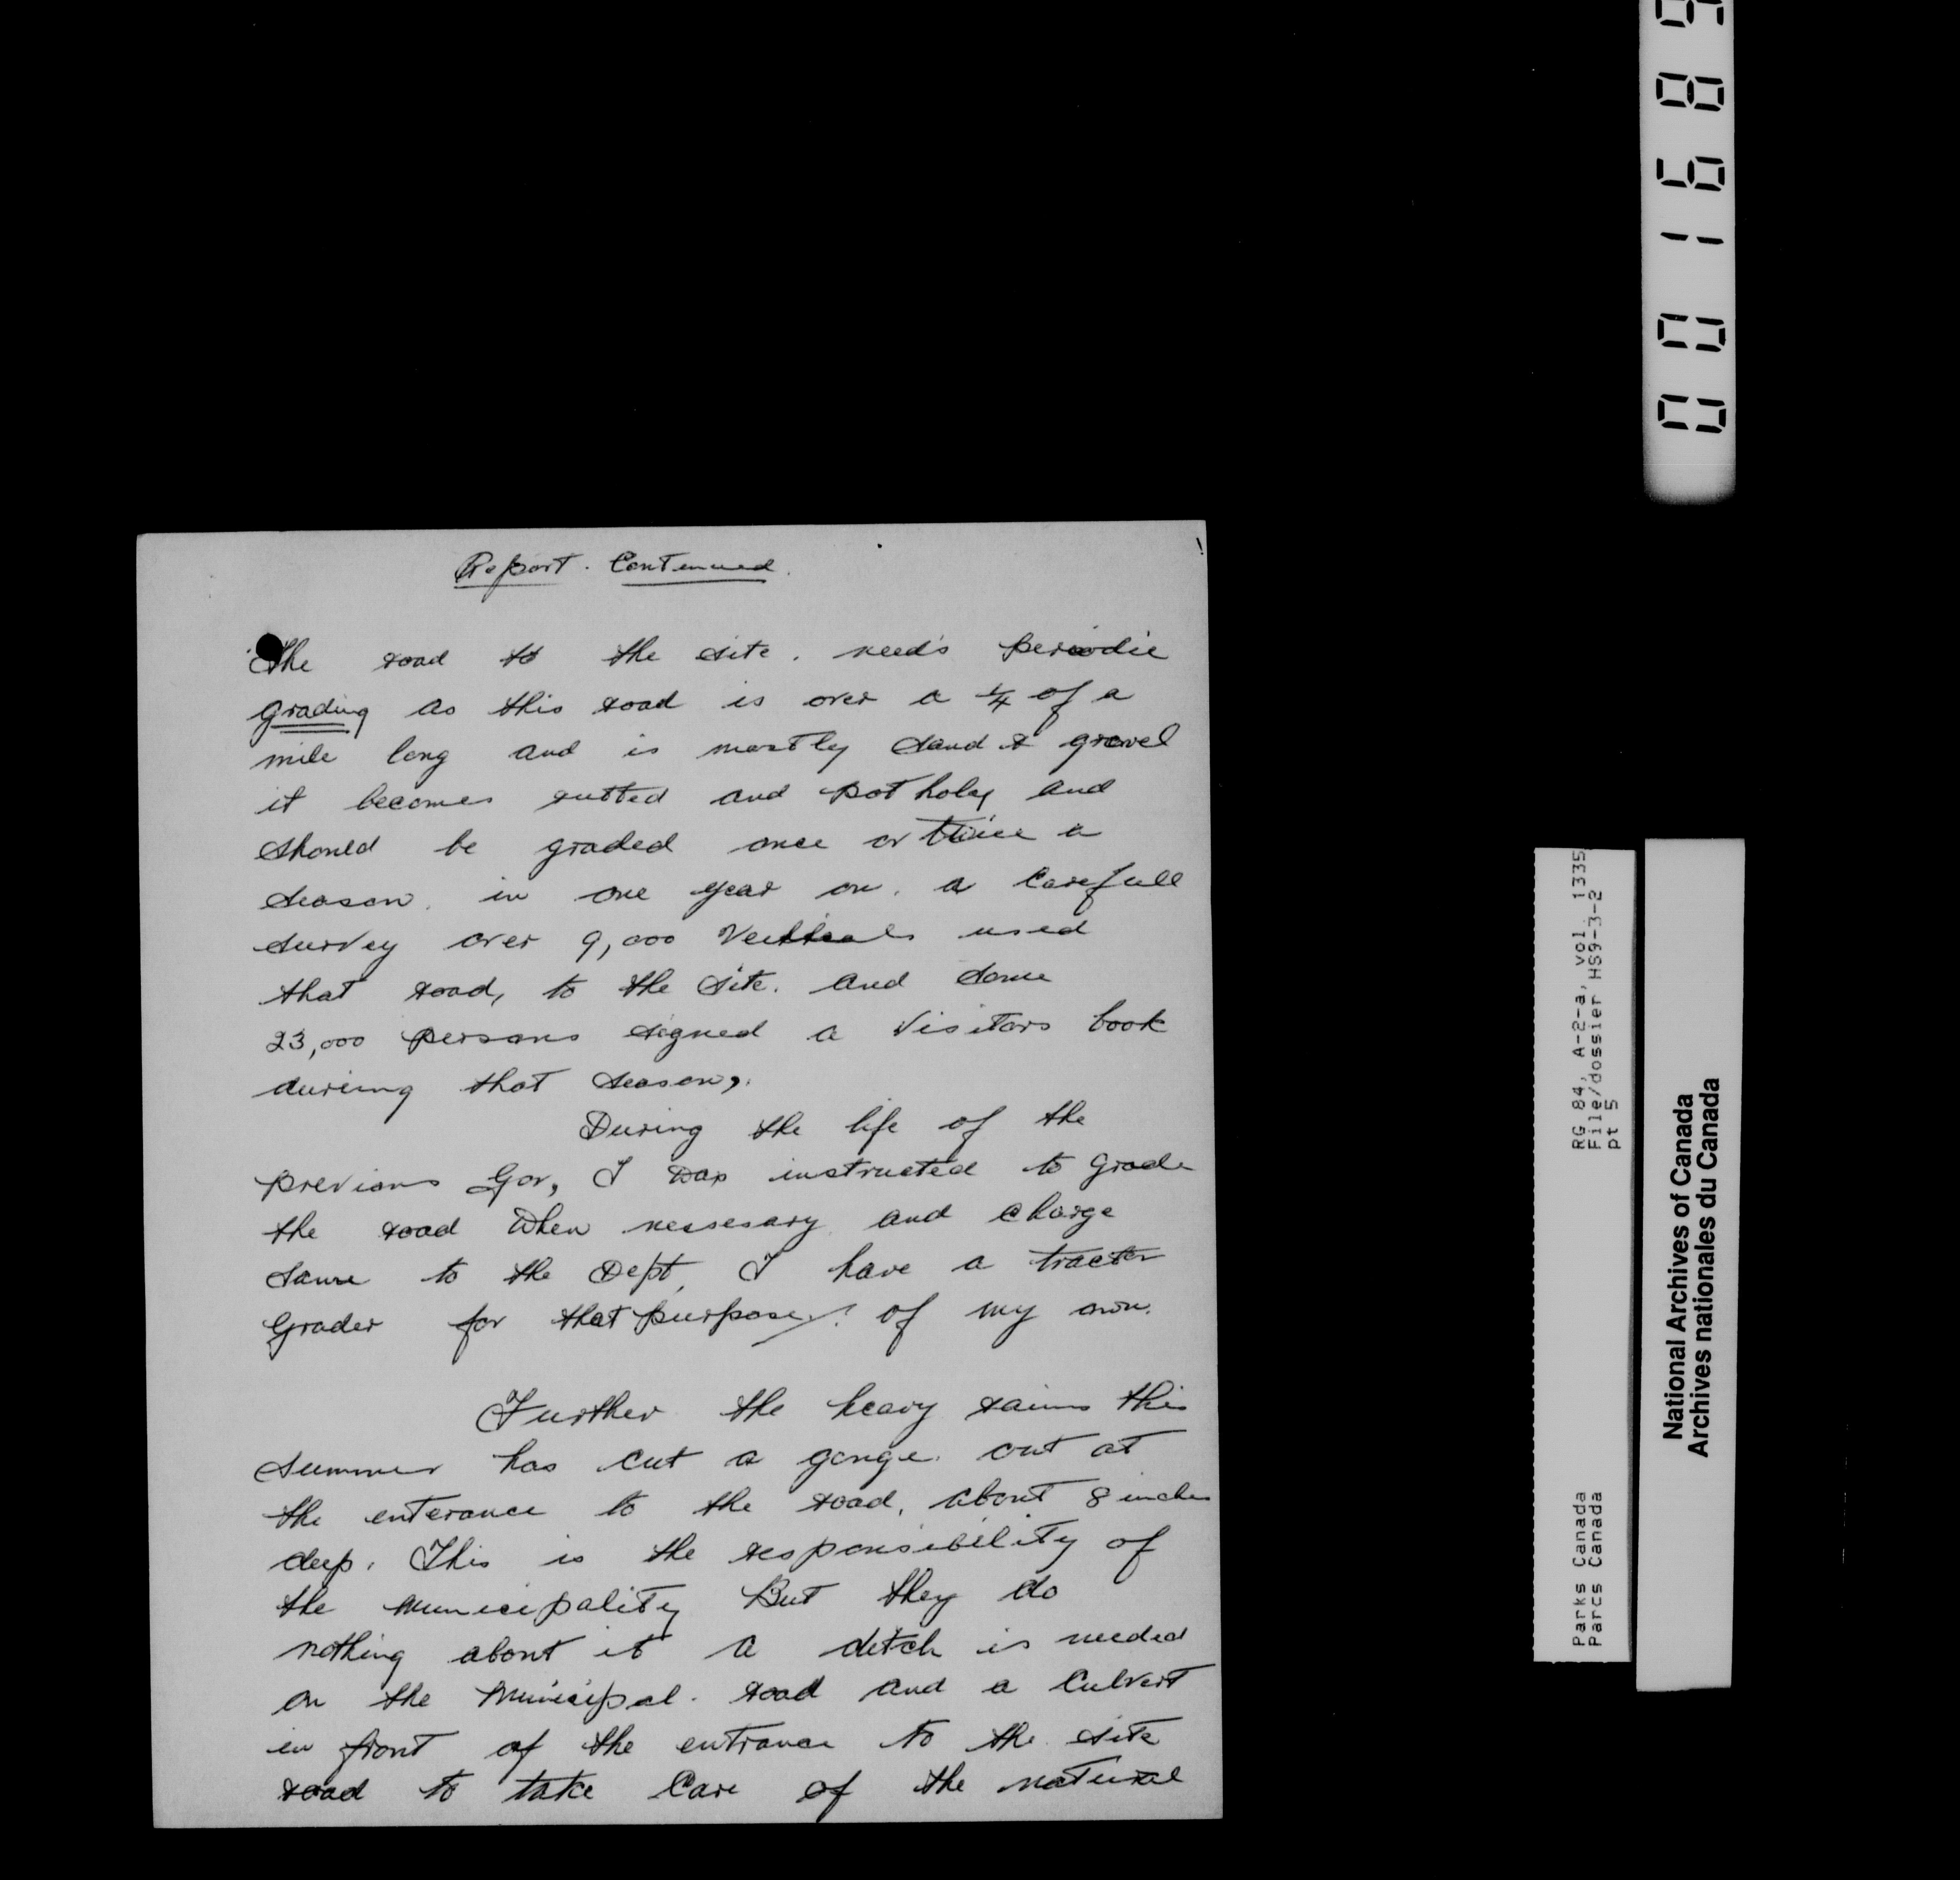 Report. Continued.
The road to the site. needs periodic
grading as this road is over a 1/4 of a
mile long and is mostly sand & gravel
it becomes rutted and pot holey and
should be graded once or twice a
season. in one year on. a carefull
survey over 9,000 used
that road, to the site. and some
23,000 persons signed a visitors book
dureing that season,.
During the life of the
previous Gov, I was instructed to grade
the road when nessesary and charge
same to the Dept, I have a tracter
Grader for that purpose. of my own.
Further the heavy rains this
summer has cut a gouge. out at
the enterance to the road, about 8 inches
deep. This is the responsibility of
the municipality But they do
nothing about it a ditch is needed
on the municipal. road and a culvert
in front of the entrance to the site
road to take care of the natural
001689
RG 84, A-2-a, vol. 1335
File/dossier HS9-3-2
pt 5
Parks Canada
Parcs Canada
National Archives of Canada
Archives nationales du Canada